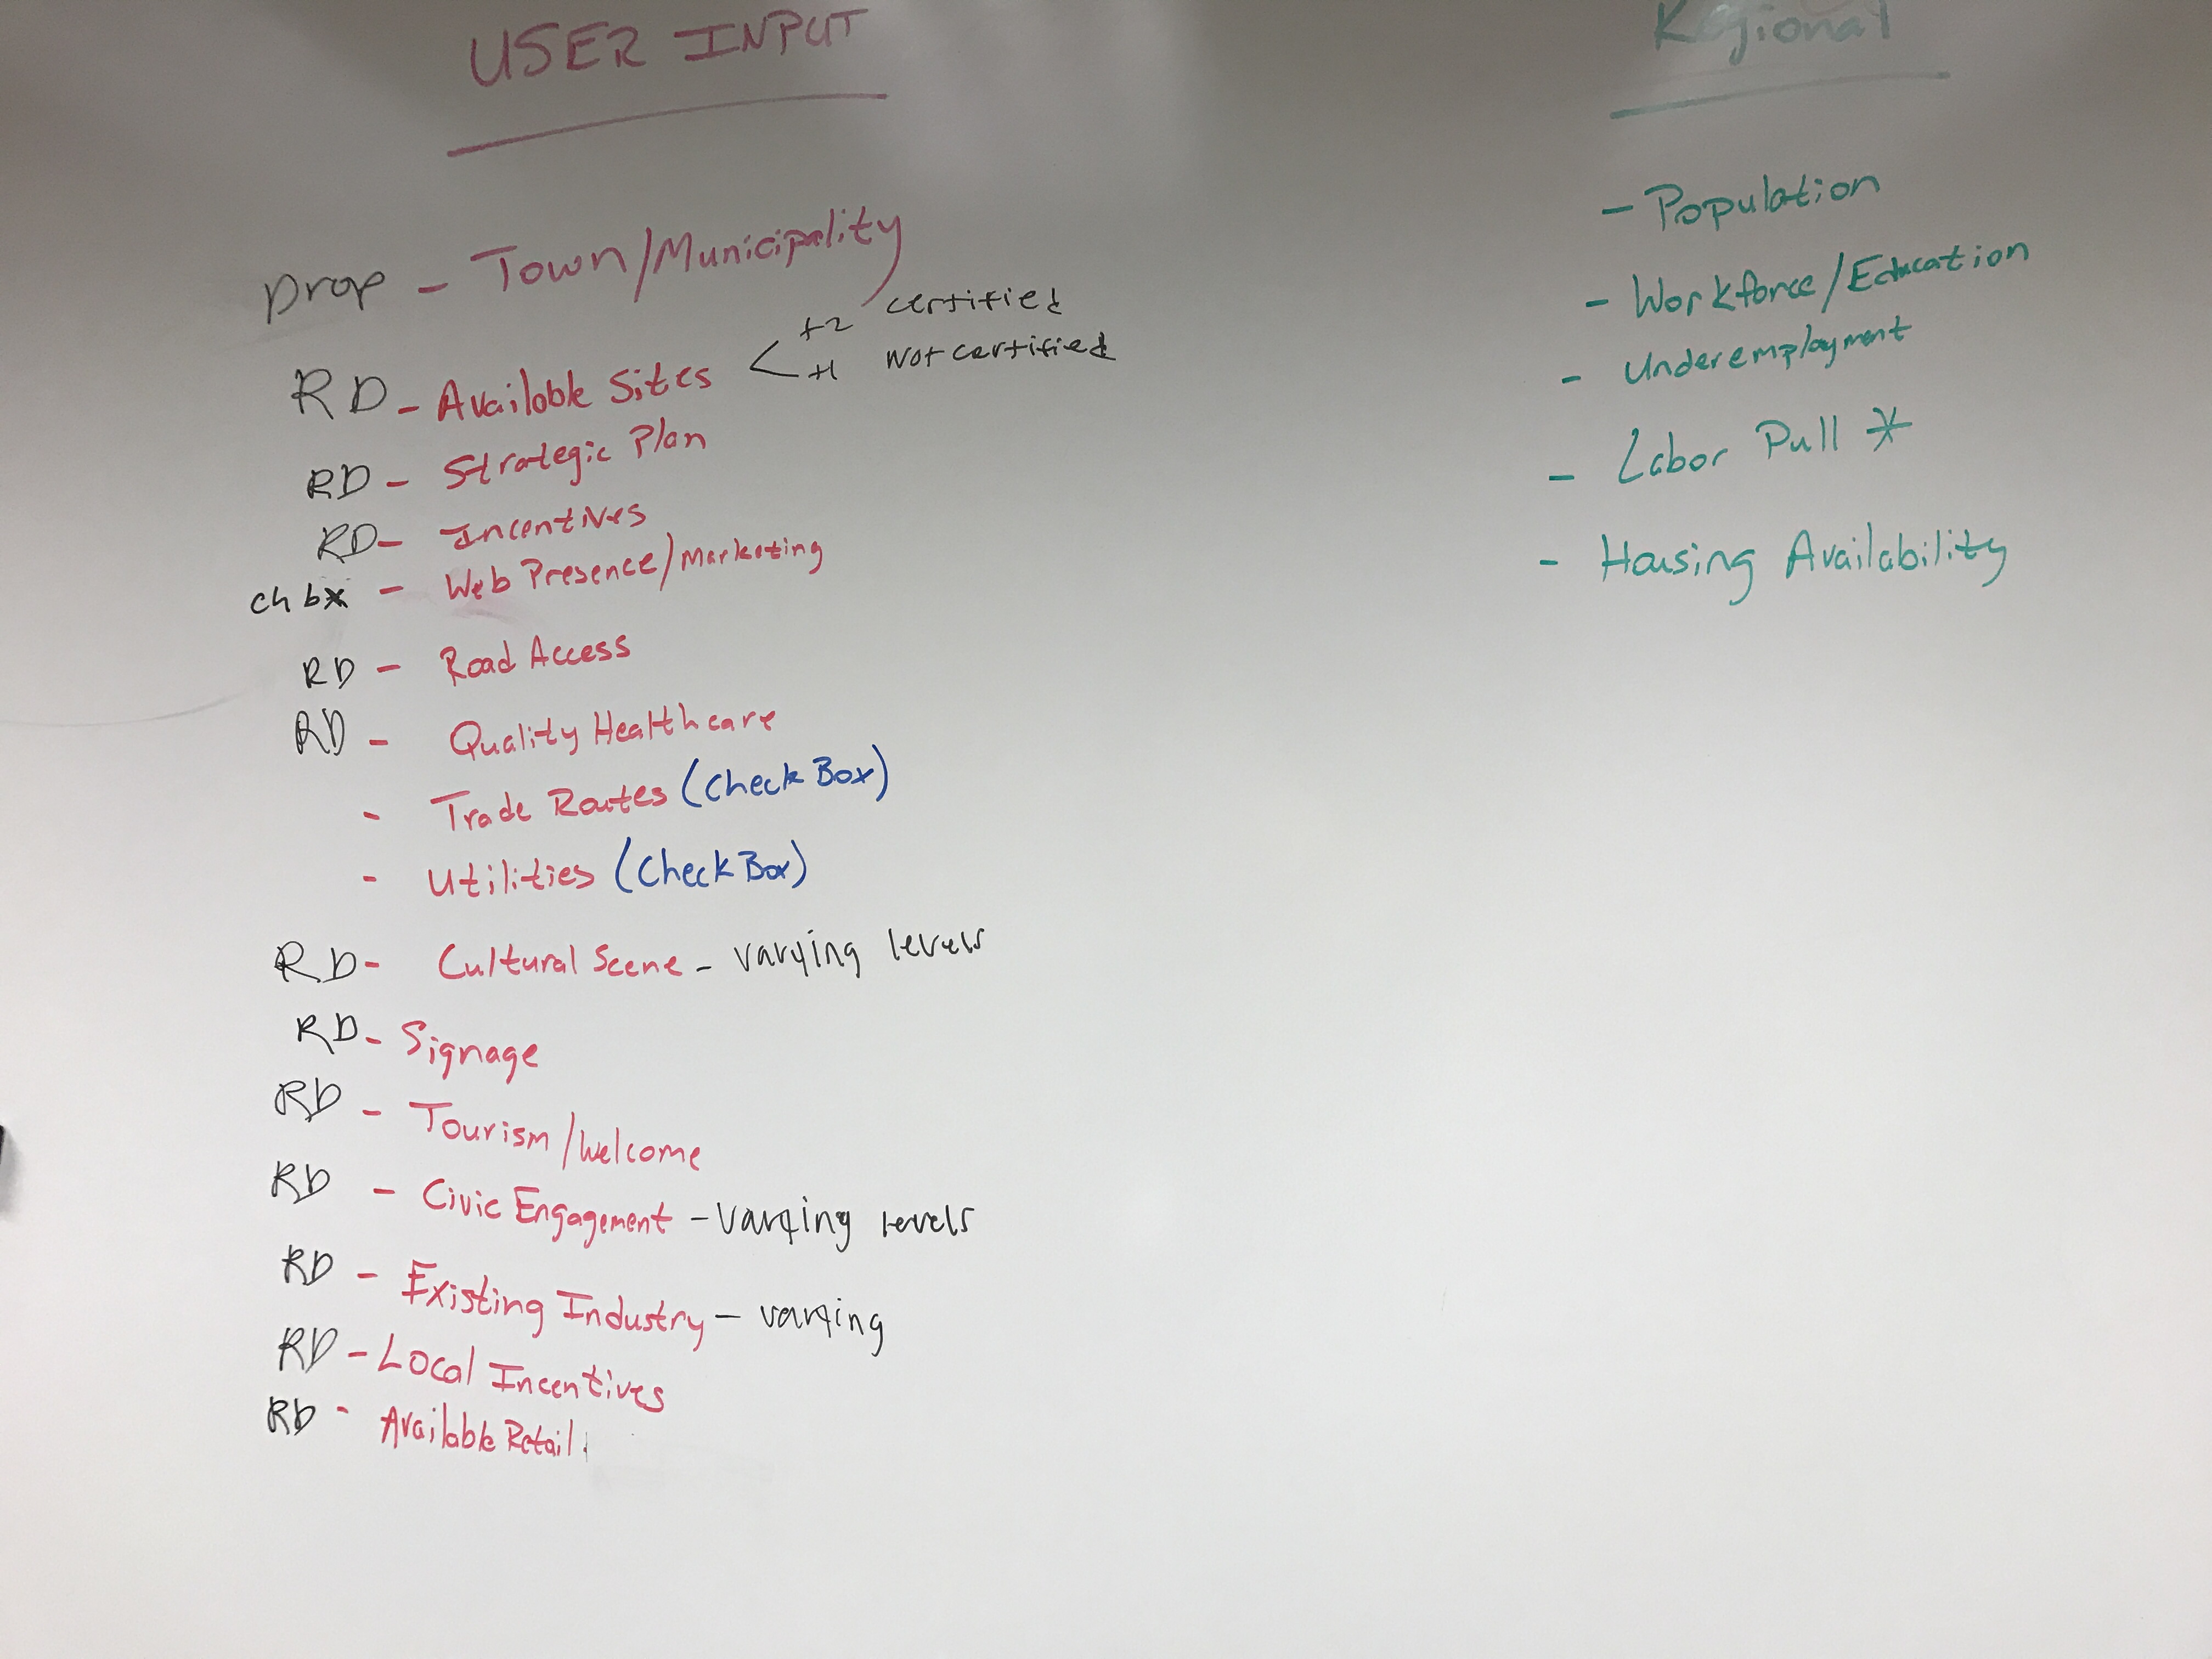 USER INPUT
Drop - Town/Municipality
RD - Available Sites < +2 certified
+1 Not certified
RD - Strategic Plan
RD - Incentives
ch bx - Web Presence/Marketing
RD - Road Access
RD - Quality Healthcare
- Trade Routes (Check Box)
- Utilities (Check Box)
RD - Cultural Scene - varying levels
RD - Signage
RD - Tourism/Welcome
RD - Civic Engagement - varying levels
RD - Existing Industry - varying
RD - Local Incentives
RD - Available Retail
Regional
- Population
- Workforce/Education
- Underemployment
- Labor Pull *
- Housing Availability